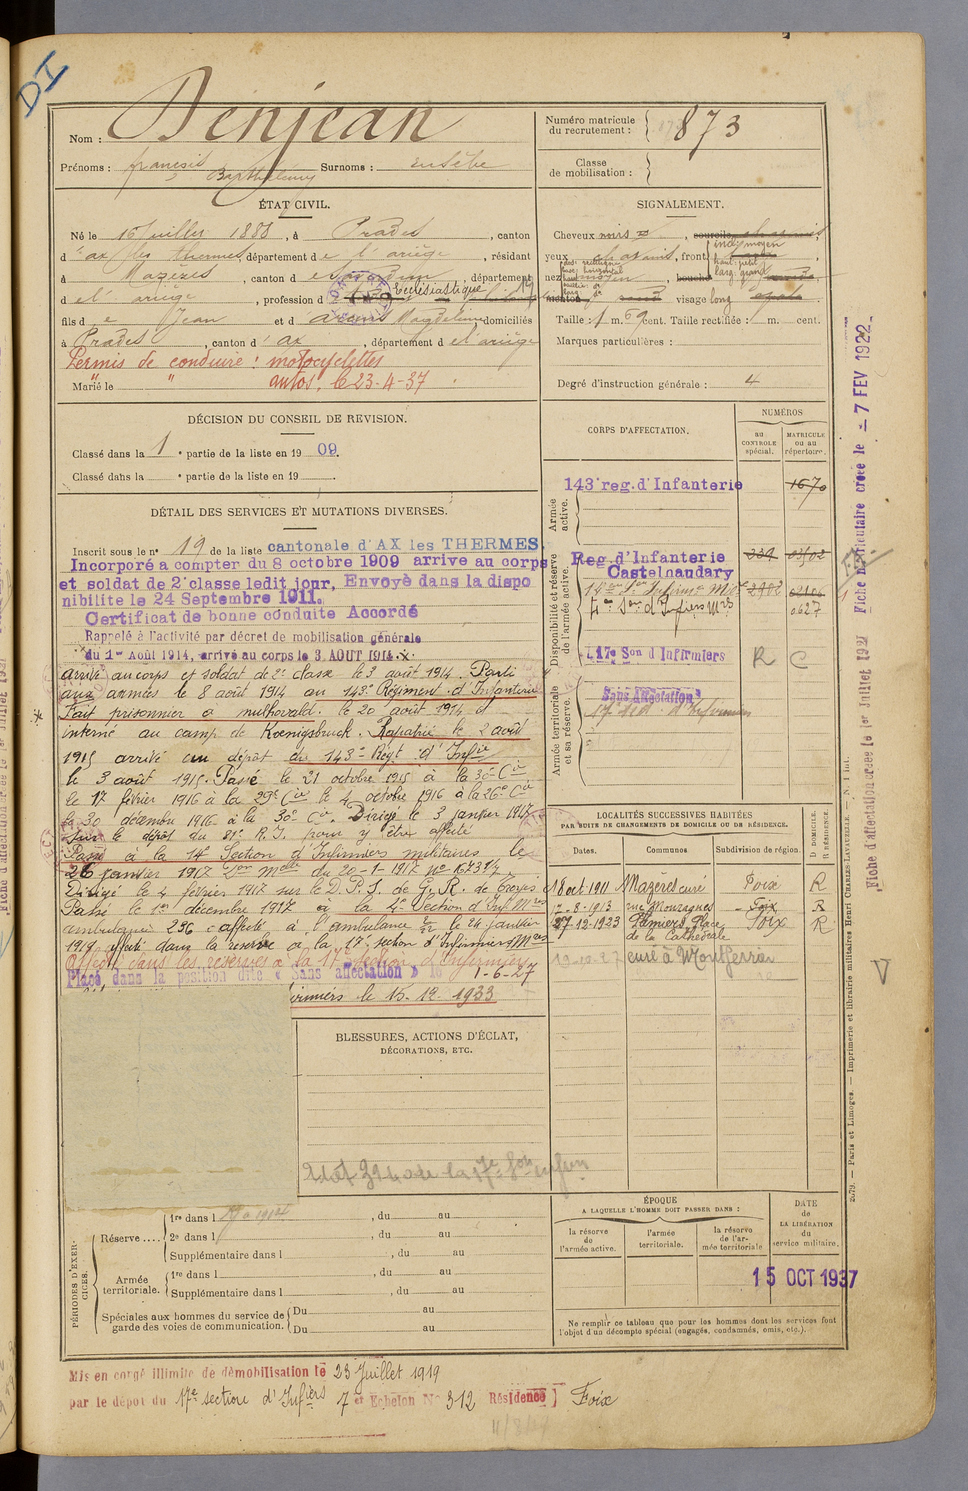 DI
Nom : Denjean
Prénoms : françois Barthélemy Surnoms : Eusèbe
Numéro matricule du recrutement : 873
Classe de mobilisation :
ÉTAT CIVIL.
Né le 16 Juillet 1888, à Prades, canton
d'ax les thermes, département de l'ariège, résidant
à Mazères, canton de Saverdun, département
d el'ariège, profession d Ecclésiastique
fils de Jean et d Magdeleine domiciliés
à Prades, canton d'ax, département d el'ariège
Permis de conduire : motocyclettes
" " autos. le 23-4-37
Marié le
SIGNALEMENT.
Cheveux noirs, sourcils
yeux chatains, front
inc. moyen
nez moyen, bouche
menton, visage long
Taille : 1 m. 69 cent. Taille rectifiée : m. cent.
Marques particulières :
Degré d'instruction générale : 4
DÉCISION DU CONSEIL DE REVISION.
Classé dans la 1 e partie de la liste en 1909.
Classé dans la e partie de la liste en 19 .
DÉTAIL DES SERVICES ET MUTATIONS DIVERSES.
Inscrit sous le n° 19 de la liste cantonale d'AX les THERMES.
Incorporé a compter du 8 octobre 1909 arrive au corps
et soldat de 2e classe ledit jour, Envoyé dans la dispo
nibilite le 24 Septembre 1911.
Certificat de bonne conduite Accordé
Rappelé à l'activité par décret de mobilisation générale
du 1er Août 1914, arrivé au corps le 3 AOUT 1914.
arrivé au corps et soldat de 2e classe le 3 août 1914. Parti
aux armées le 8 août 1914 au 143e Régiment d'Infanterie
Fait prisonnier a mulhovald. le 20 août 1914 et
interné au camp de Kœnigsbruck. Rapatrié le 2 août
1915 arrivé au dépôt du 143e Régt d'Infie
le 3 août 1915. Passé le 21 octobre 1915 à la 30e Cie
le 17 février 1916 à la 29e Cie le 4 octobre 1916 à la 26e Cie
le 30 décembre 1916 à la 30e Cie. Dirigé le 3 janvier 1917
sur le dépôt du 81e R.I. pour y être affecté
Passé à la 14e Section d'Infirmiers militaires le
26 janvier 1917 Don Melle du 20-1-1917 No 16731/4
Dirigé le 4 février 1917 sur le D.P.S. de G.R. de Troyes
Passé le 1er décembre 1917 à la 4e Section d'Inf. Mres
ambulance 296 affecté à l'ambulance 2/22 le 24 janvier
1919 affecté dans la reserve à la 17e section d'Infirmiers Mres
Affecté dans les réserves à la 17e section d'Infirmiers
Placé dans la position dite « Sans affectation » le 1-6-27
irmiers le 15-12-1933
CORPS D'AFFECTATION.
NUMÉROS
au CONTROLE spécial.
MATRICULE ou au répertoire.
Armée active.
143e reg. d'Infanterie 1670
Disponibilité et réserve de l'armée active.
Reg. d'Infanterie 339
Castelnaudary
4e Son d'Infiers Mres 0627
17e Son d Infirmiers R C
Armée territoriale et sa réserve.
Sans Affectation
LOCALITÉS SUCCESSIVES HABITÉES
PAR SUITE DE CHANGEMENTS DE DOMICILE OU DE RÉSIDENCE.
Dates. Communes Subdivision de région. D DOMICILE. R RÉSIDENCE.
18 oct. 1911 Mazères curé Foix R
17-8-1913 rue Mouzagnes Foix R
27-12-1923 Pamiers Place de la Cathédrale Foix R
19-10-27 curé à Montferrier
V
BLESSURES, ACTIONS D'ÉCLAT,
DÉCORATIONS, ETC.
PÉRIODES D'EXERCICES.
Réserve....
1re dans l , du au
2e dans l , du au
Supplémentaire dans l , du au
Armée territoriale.
1re dans l , du au
Supplémentaire dans l , du au
Spéciales aux hommes du service de garde des voies de communication.
Du au
Du au
ÉPOQUE
A LAQUELLE L'HOMME DOIT PASSER DANS :
la réserve de l'armée active.
l'armée territoriale.
la réserve de l'armée territoriale
DATE de LA LIBÉRATION du service militaire.
15 OCT 1937
Ne remplir ce tableau que pour les hommes dont les services font l'objet d'un décompte spécial (engagés, condamnés, omis, etc.).
Mis en congé illimité de démobilisation le 23 Juillet 1919
par le dépôt du 17e section d'Infiers 7e Echelon No 312 Résidence ] Foix
2579. — Paris et Limoges. — Imprimerie et librairie militaires Henri CHARLES-LAVAUZELLE. — N. 1 int.
Fiche d'affectation créée le 1er Juillet 1927
Fiche Matriculaire créée le - 7 FEV 1922